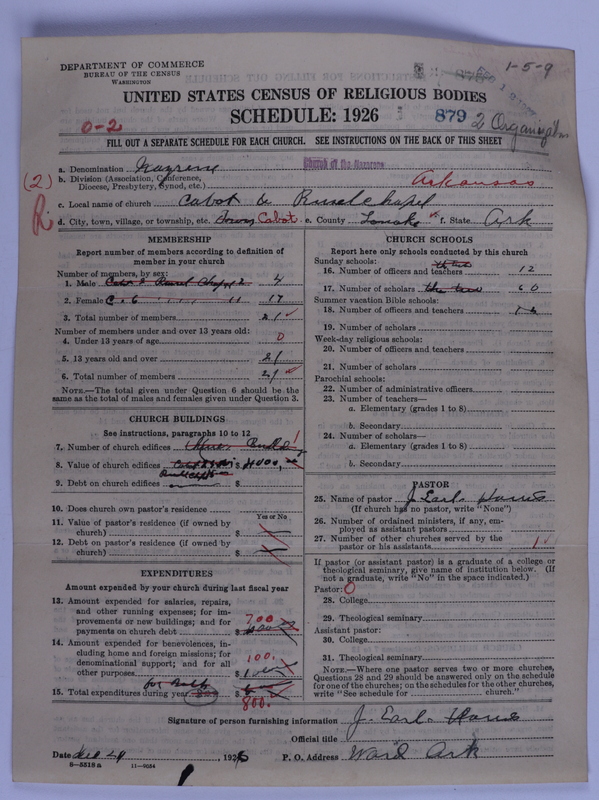 DEPARTMENT OF COMMERCE
BUREAU OF THE CENSUS
WASHINGTON
1-5-9
UNITED STATES CENSUS OF RELIGIOUS BODIES
SCHEDULE: 1926
879
2 Organization
0-2
FILL OUT A SEPARATE SCHEDULE FOR EACH CHURCH. SEE INSTRUCTIONS ON THE BACK OF THIS SHEET
a. Denomination Nazrene Church of the Nazarene
b. Division (Association, Conference, Diocese, Presbytery, Synod, etc.) Arkansas
(2)
c. Local name of church Cabot & Rural chapel
d. City, town, village, or township, etc. Cabot e. County Lonoke f. State Ark
MEMBERSHIP
Report number of members according to definition of
member in your church
Number of members, by sex:
1. Male 4
2. Female 17
3. Total number of members 21
Number of members under and over 13 years old:
4. Under 13 years of age 0
5. 13 years old and over 21
6. Total number of members 21
NOTE.—The total given under Question 6 should be the
same as the total of males and females given under Question 3.
CHURCH BUILDINGS
See instructions, paragraphs 10 to 12
7. Number of church edifices 1
8. Value of church edifices $
9. Debt on church edifices $
10. Does church own pastor's residence
Yes or No
11. Value of pastor's residence (if owned by
church) $
12. Debt on pastor's residence (if owned by
church) $
EXPENDITURES
Amount expended by your church during last fiscal year
13. Amount expended for salaries, repairs,
and other running expenses; for im-
provements or new buildings; and for
payments on church debt $ 700
14. Amount expended for benevolences, in-
cluding home and foreign missions; for
denominational support; and for all
other purposes $ 100.
for Both
15. Total expenditures during year $
800.
CHURCH SCHOOLS
Report here only schools conducted by this church
Sunday schools:
16. Number of officers and teachers 12
17. Number of scholars 60
Summer vacation Bible schools:
18. Number of officers and teachers
19. Number of scholars
Week-day religious schools:
20. Number of officers and teachers
21. Number of scholars
Parochial schools:
22. Number of administrative officers
23. Number of teachers—
a. Elementary (grades 1 to 8)
b. Secondary
24. Number of scholars—
a. Elementary (grades 1 to 8)
b. Secondary
PASTOR
25. Name of pastor J. Earl. Harris
(If church has no pastor, write "None")
26. Number of ordained ministers, if any, em-
ployed as assistant pastors
27. Number of other churches served by the
pastor or his assistants 1
If pastor (or assistant pastor) is a graduate of a college or
theological seminary, give name of institution below. (If
not a graduate, write "No" in the space indicated.)
Pastor: 0
28. College
29. Theological seminary
Assistant pastor:
30. College
31. Theological seminary
NOTE.—Where one pastor serves two or more churches,
Questions 28 and 29 should be answered only on the schedule
for one of the churches; on the schedules for the other churches,
write "See schedule for church."
Signature of person furnishing information J. Earl. Harris
Official title
Date 29, 1926 P. O. Address Ward Ark
8—5518 a 11—9054